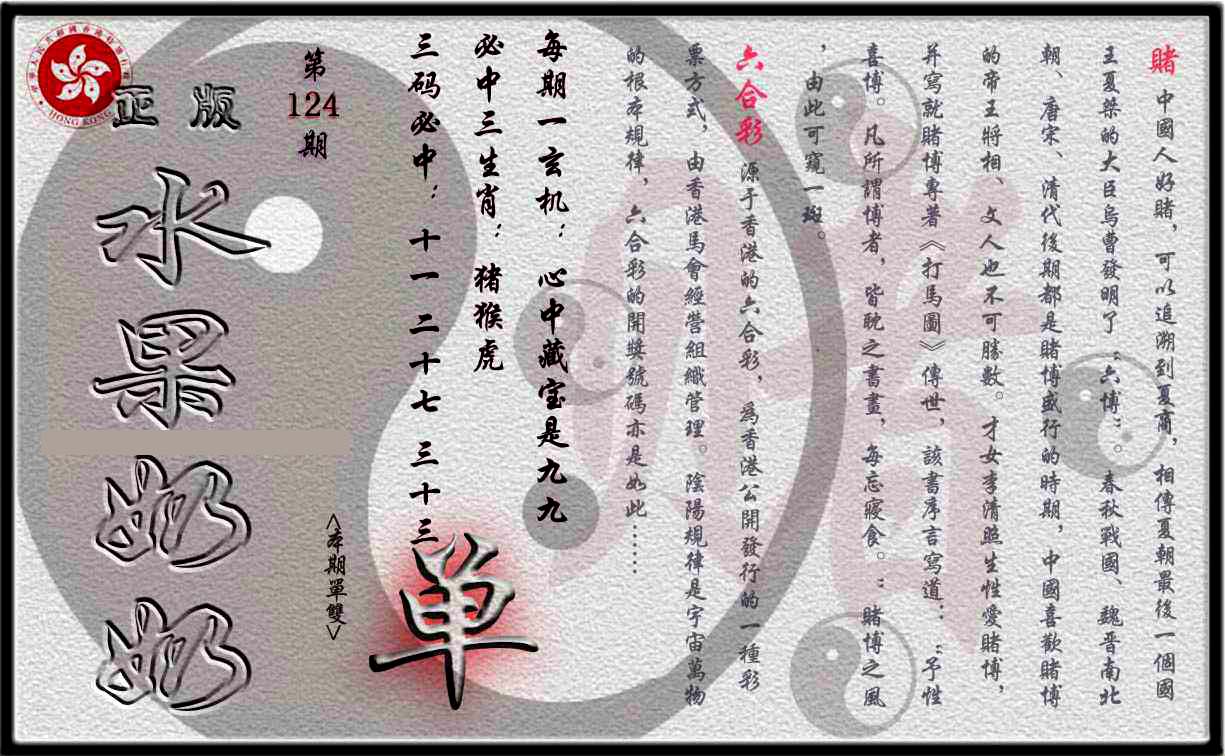 賭 中國人好賭，可以追溯到夏商，相傳夏朝最後一個國
王夏桀的大臣烏曹發明了“六博”。春秋戰國、魏晉南北
朝、唐宋、清代後期都是賭博盛行的時期，中國喜歡賭博
的帝王將相、文人也不可勝數。才女李清照生性愛賭博，
并寫就賭博專著《打馬圖》傳世，該書序言寫道：“予性
喜博。凡所謂博者，皆耽之書畫，每忘寢食。”賭博之風
，由此可窺一斑。
六合彩 源于香港的六合彩，為香港公開發行的一種彩
票方式，由香港馬會經營組織管理。陰陽規律是宇宙萬物
的根本規律，六合彩的開獎號碼亦是如此……
每期一玄机：心中藏宝是九九
必中三生肖：猪猴虎
三码必中：十一 二十七 三十三
单
<本期單雙>
第
124
期
正版
水果奶奶
HONG KONG